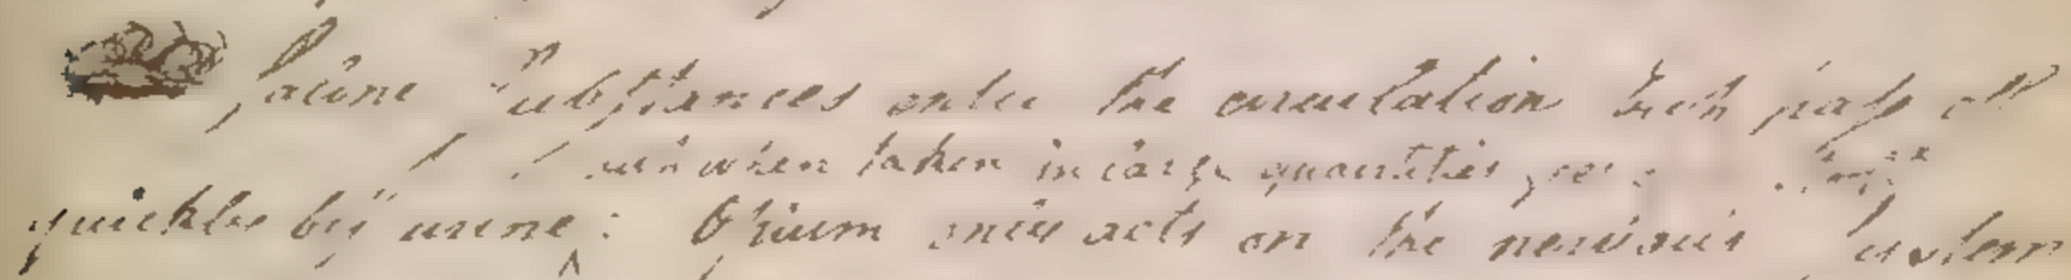 Saline Substances enter the circulation but pass off
when taken in large quantities
quickly by urine : Opium only acts on the nervous System